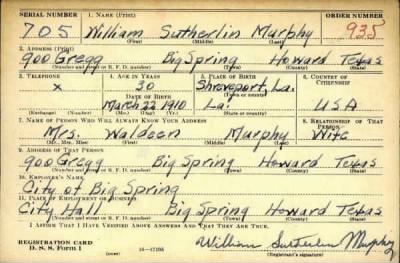 SERIAL NUMBER 1. NAME (Print) ORDER NUMBER
705 William Sutherlin Murphy 935
(First) (Middle) (Last)
2. ADDRESS (Print)
900 Gregg Big Spring Howard Texas
(Number and street or R. F. D. number) (Town) (County) (State)
3. TELEPHONE 4. AGE IN YEARS 5. PLACE OF BIRTH 6. COUNTRY OF CITIZENSHIP
x 30 Shreveport, La.
DATE OF BIRTH (Town or county)
March 22 1910 La. USA
(Exchange) (Number) (Mo.) (Day) (Yr.) (State or country)
7. NAME OF PERSON WHO WILL ALWAYS KNOW YOUR ADDRESS 8. RELATIONSHIP OF THAT PERSON
Mrs. Waldeen Murphy Wife
(Mr., Mrs., Miss) (First) (Middle) (Last)
9. ADDRESS OF THAT PERSON
900 Gregg Big Spring Howard Texas
(Number and street or R. F. D. number) (Town) (County) (State)
10. EMPLOYER'S NAME
City of Big Spring
11. PLACE OF EMPLOYMENT OR BUSINESS
City Hall Big Spring Howard Texas
(Number and street or R. F. D. number) (Town) (County) (State)
I AFFIRM THAT I HAVE VERIFIED ABOVE ANSWERS AND THAT THEY ARE TRUE.
REGISTRATION CARD
D. S. S. Form 1 (over) William Sutherlin Murphy
(Registrant's signature)